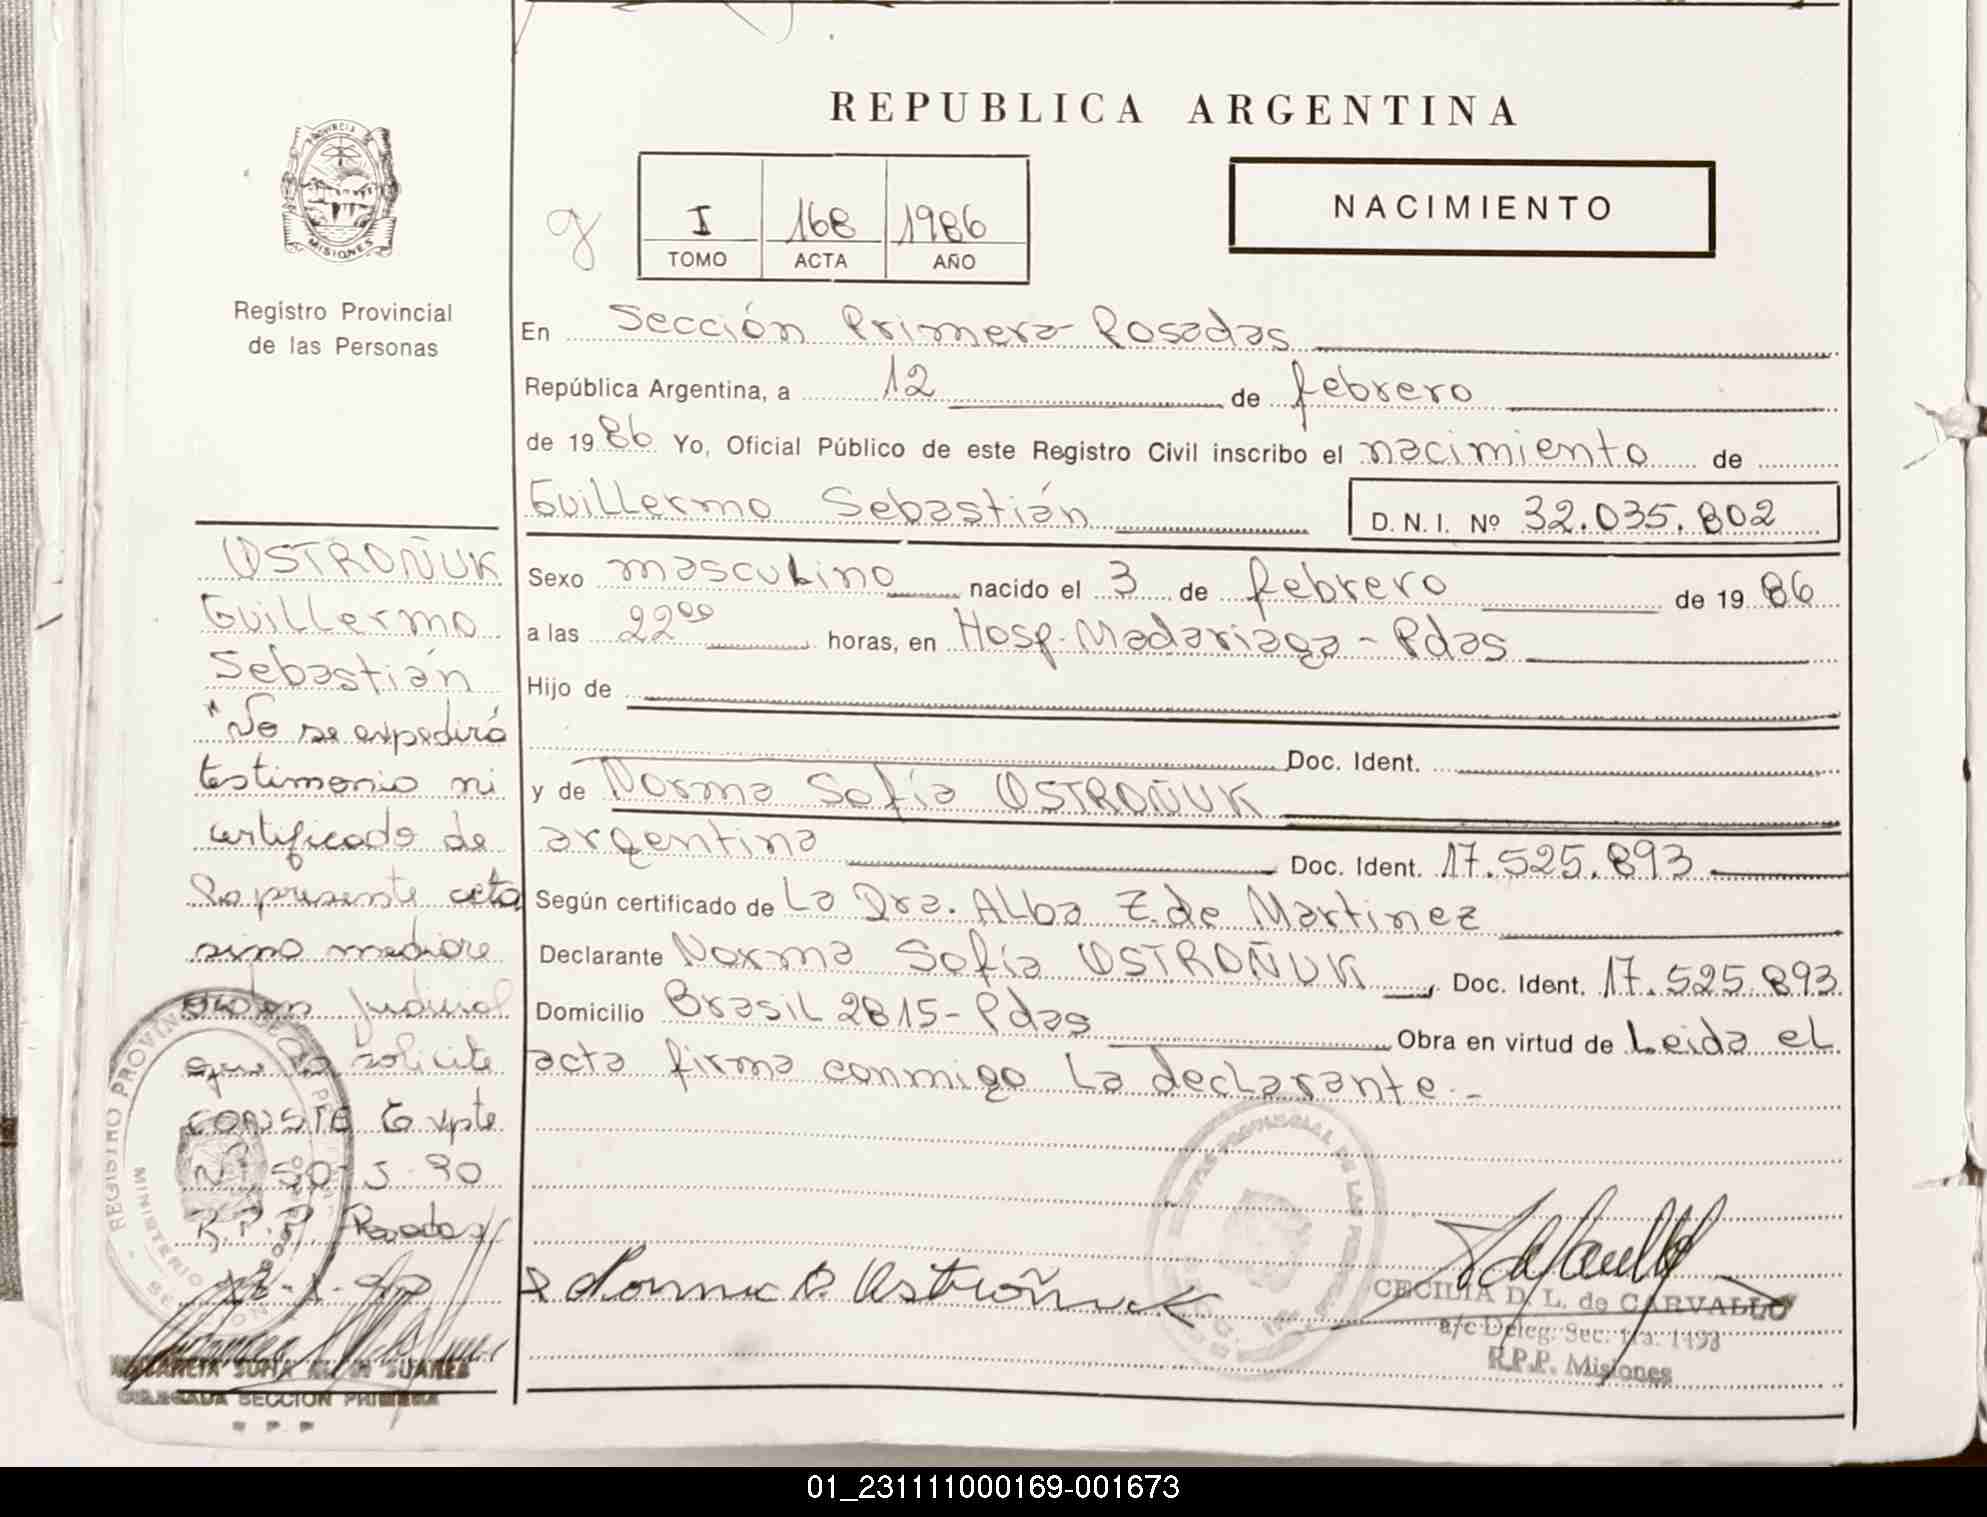 REPUBLICA ARGENTINA
PROVINCIA
MISIONES
Registro Provincial
de las Personas
I 168 1986
TOMO ACTA AÑO
NACIMIENTO
En Sección Primera Posadas
República Argentina, a 12 de febrero
de 1986 Yo, Oficial Público de este Registro Civil inscribo el nacimiento de
Guillermo Sebastián D. N. I. Nº 32.035.802
Sexo masculino nacido el 3 de febrero de 1986
a las 22⁰⁰ horas, en Hosp. Madariaga - Pdas
Hijo de
Doc. Ident.
y de Norma Sofía OSTROÑUK
argentina Doc. Ident. 17.525.893
Según certificado de La Dra. Alba Z. de Martinez
Declarante Norma Sofía OSTROÑUK, Doc. Ident. 17.525.893
Domicilio Brasil 2815 - Pdas Obra en virtud de Leida el
acta firma conmigo La declarante. -
OSTROÑUK
Guillermo
Sebastián
"No se expedirá
testimonio ni
certificado de
la presente acta
sino mediare
orden judicial
que lo solicite
CONSTE
Nº 50
R.P.P. Posadas
SUAREZ
DELEGADA SECCION PRIMERA
R P P
Norma S. Ostroñuk
CECILIA D. L. de CARVALLO
a/c Deleg. Sec. 1ra. 1493
R.P.P. Misiones
01_231111000169-001673